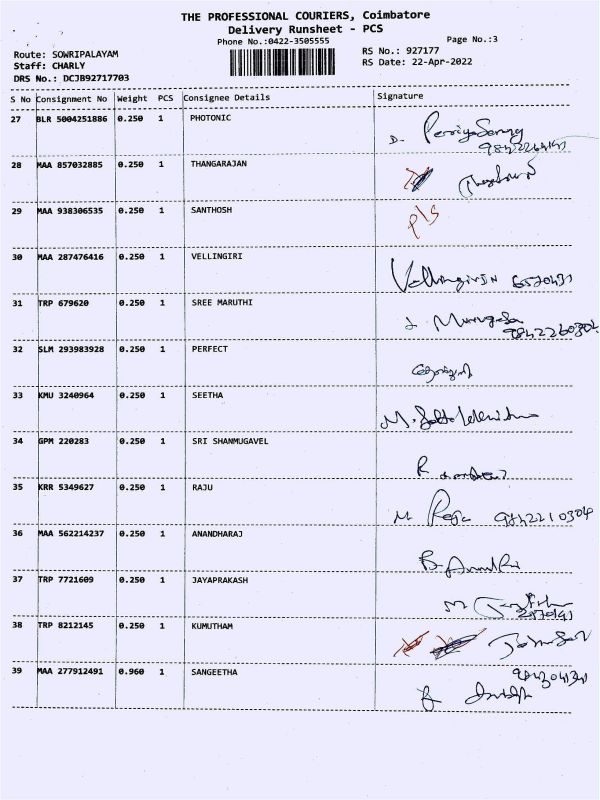 THE PROFESSIONAL COURIERS, Coimbatore
Delivery Runsheet - PCS
Phone No.:0422-3505555
Page No.:3
Route: SOWRIPALAYAM
RS No.: 927177
Staff: CHARLY
RS Date: 22-Apr-2022
DRS No.: DCJB92717703
S No Consignment No Weight PCS Consignee Details Signature
27 BLR 5004251886 0.250 1 PHOTONIC
28 MAA 857032885 0.250 1 THANGARAJAN
29 MAA 938306535 0.250 1 SANTHOSH P/S
30 MAA 287476416 0.250 1 VELLINGIRI 6570431
31 TRP 679620 0.250 1 SREE MARUTHI
9842260304
32 SLM 293983928 0.250 1 PERFECT
33 KMU 3240964 0.250 1 SEETHA
34 GPM 220283 0.250 1 SRI SHANMUGAVEL
35 KRR 5349627 0.250 1 RAJU 9842210304
36 MAA 562214237 0.250 1 ANANDHARAJ
37 TRP 7721609 0.250 1 JAYAPRAKASH
38 TRP 8212145 0.250 1 KUMUTHAM
39 MAA 277912491 0.960 1 SANGEETHA